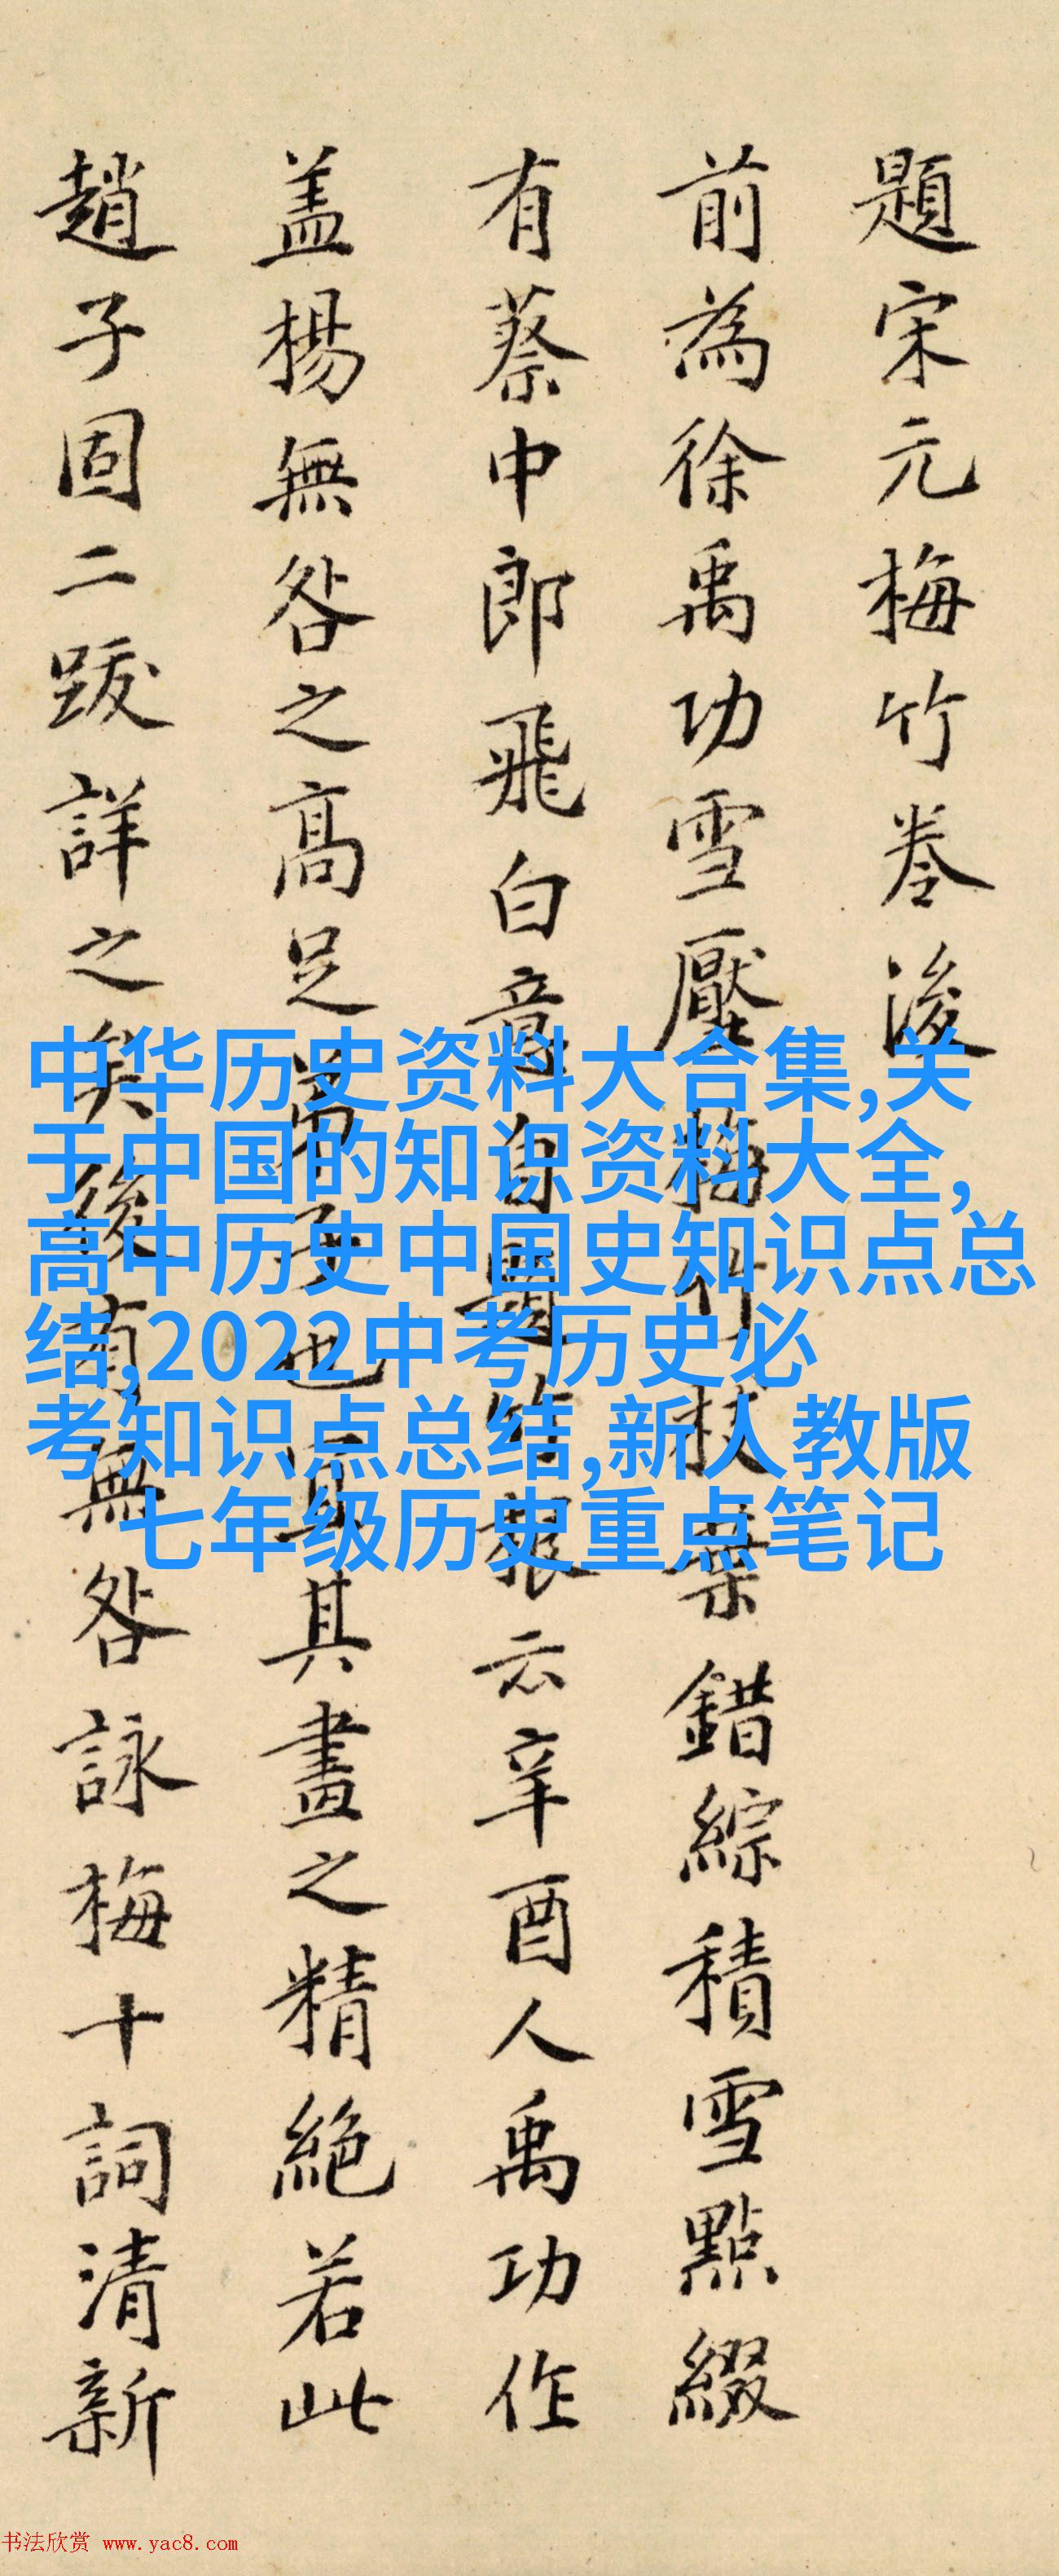 題宋元梅竹卷後
前為徐禹功雪壓梅竹枝葉錯綜積雪點綴
有蔡中郎飛白意自題竹根云辛酉人禹功作
盖楊無咎之高足弟子也宜其畫之精絶若此
趙子固二跋詳之矣後有無咎詠梅十詞清新
中华历史资料大合集,关
于中国的知识资料大全,
高中历史中国史知识点总
结,2022中考历史必
考知识点总结,新人教版
七年级历史重点笔记
书法欣赏 www.yac8.com